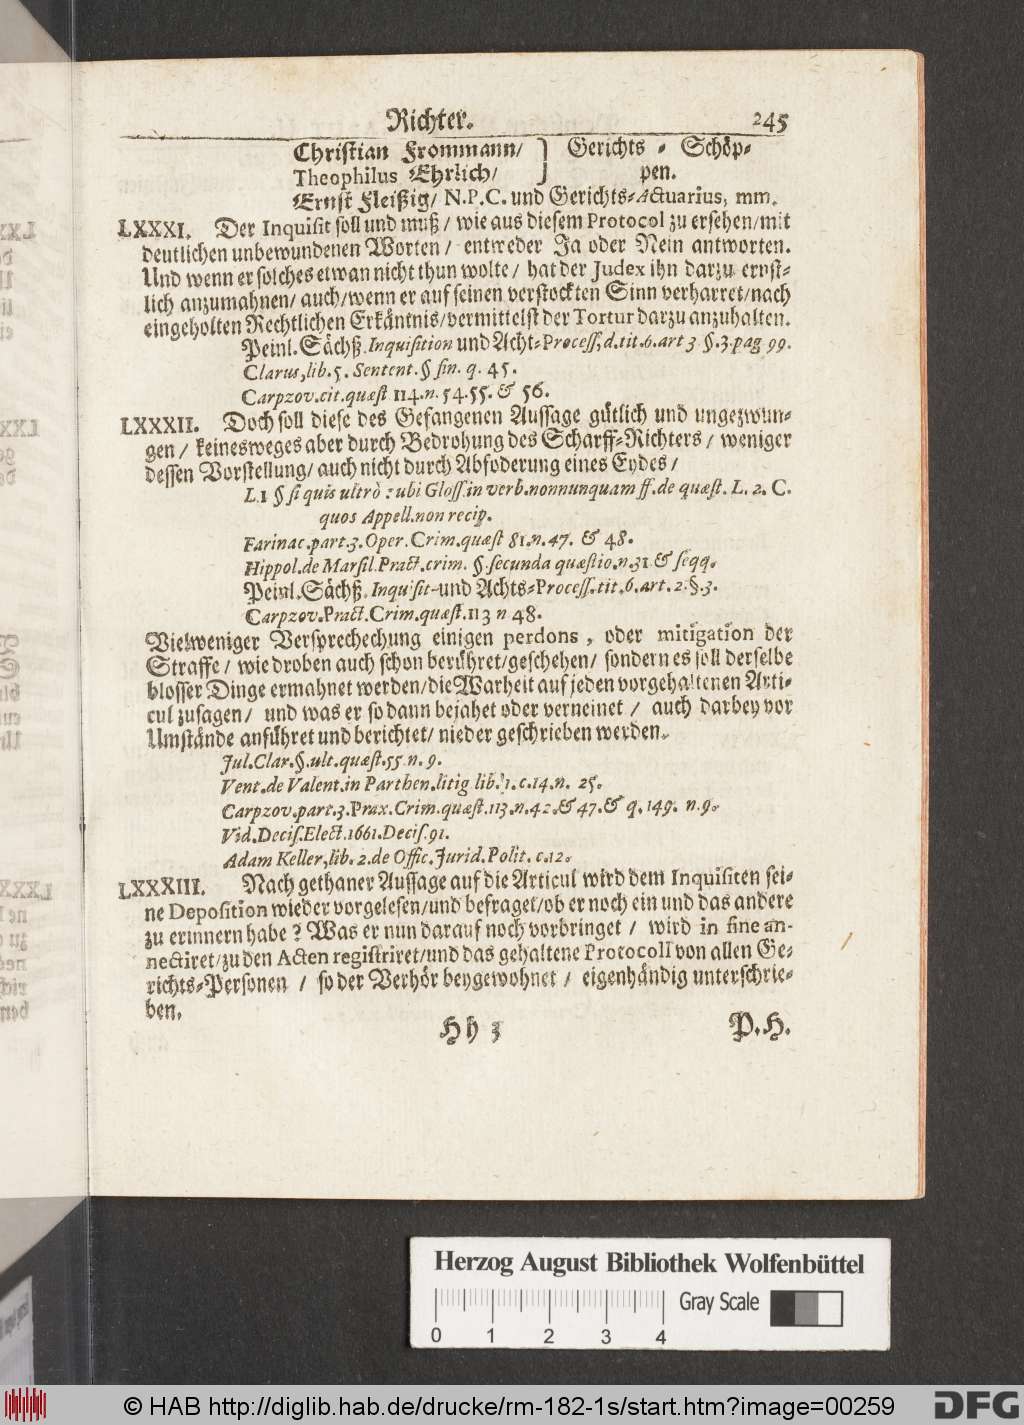 Richter.
245
Christian Frommann/ } Gerichts - Schöp-
Theophilus Ehrlich/ } pen.
Ernst Fleißig/ N.P.C. und Gerichts-Actuarius, mm.
LXXXI. Der Inquisit soll und muß / wie aus diesem Protocol zu ersehen/mit
deutlichen unbewundenen Worten / entweder Ja oder Nein antworten.
Und wenn er solches etwan nicht thun wolte / hat der Judex ihn darzu ernst-
lich anzumahnen/ auch/wenn er auf seinen verstockten Sinn verharret/nach
eingeholten Rechtlichen Erkäntnis/vermittelst der Tortur darzu anzuhalten.
Peinl. Sächß. Inquisition und Acht-Process, d. tit. 6. art 3 §. 3. pag 99.
Clarus, lib. 5. Sentent. § fin. q. 45.
Carpzov. cit. quæst 114. n. 54. 55. & 56.
LXXXII. Doch soll diese des Gefangenen Aussage gütlich und ungezwun-
gen / keinesweges aber durch Bedrohung des Scharff-Richters / weniger
dessen Vorstellung/ auch nicht durch Abfoderung eines Eydes /
L. 1 § si quis ultrò : ubi Gloss. in verb. nonnunquam ff. de quæst. L. 2. C.
quos Appell. non recip.
Farinac. part. 3. Oper. Crim. quæst 81. n. 47. & 48.
Hippol. de Marsil. Pract. crim. §. secunda quæstio. n. 31 & seqq.
Peinl. Sächß. Inquisit- und Achts-Process. tit. 6. art. 2. §. 3.
Carpzov. Pract. Crim. quæst. 113 n 48.
Vielweniger Versprechechung einigen perdons, oder mitigation der
Straffe / wie droben auch schon berühret/geschehen/ sondern es soll derselbe
blosser Dinge ermahnet werden/die Warheit auf jeden vorgehaltenen Arti-
cul zusagen / und was er so dann bejahet oder verneinet / auch darbey vor
Umstände anführet und berichtet/ nieder geschrieben werden.
Jul. Clar. §. ult. quæst. 55 n. 9.
Vent. de Valent. in Parthen. litig lib. 1. c. 14. n. 25.
Carpzov. part. 3. Prax. Crim. quæst. 113. n. 42. & 47. & q. 149. n. 9.
Vid. Decis. Elect. 1661. Decis. 91.
Adam Keller, lib. 2. de Offic. Jurid. Polit. c. 12.
LXXXIII. Nach gethaner Aussage auf die Articul wird dem Inquisiten sei-
ne Deposition wieder vorgelesen/und befraget/ob er noch ein und das andere
zu erinnern habe ? Was er nun darauf noch vorbringet / wird in fine an-
nectiret/zu den Acten registriret/und das gehaltene Protocoll von allen Ge-
richts-Personen / so der Verhör beygewohnet / eigenhändig unterschrie-
ben.
Hh 3
P.H.
Herzog August Bibliothek Wolfenbüttel
Gray Scale
0 1 2 3 4
© HAB http://diglib.hab.de/drucke/rm-182-1s/start.htm?image=00259
DFG